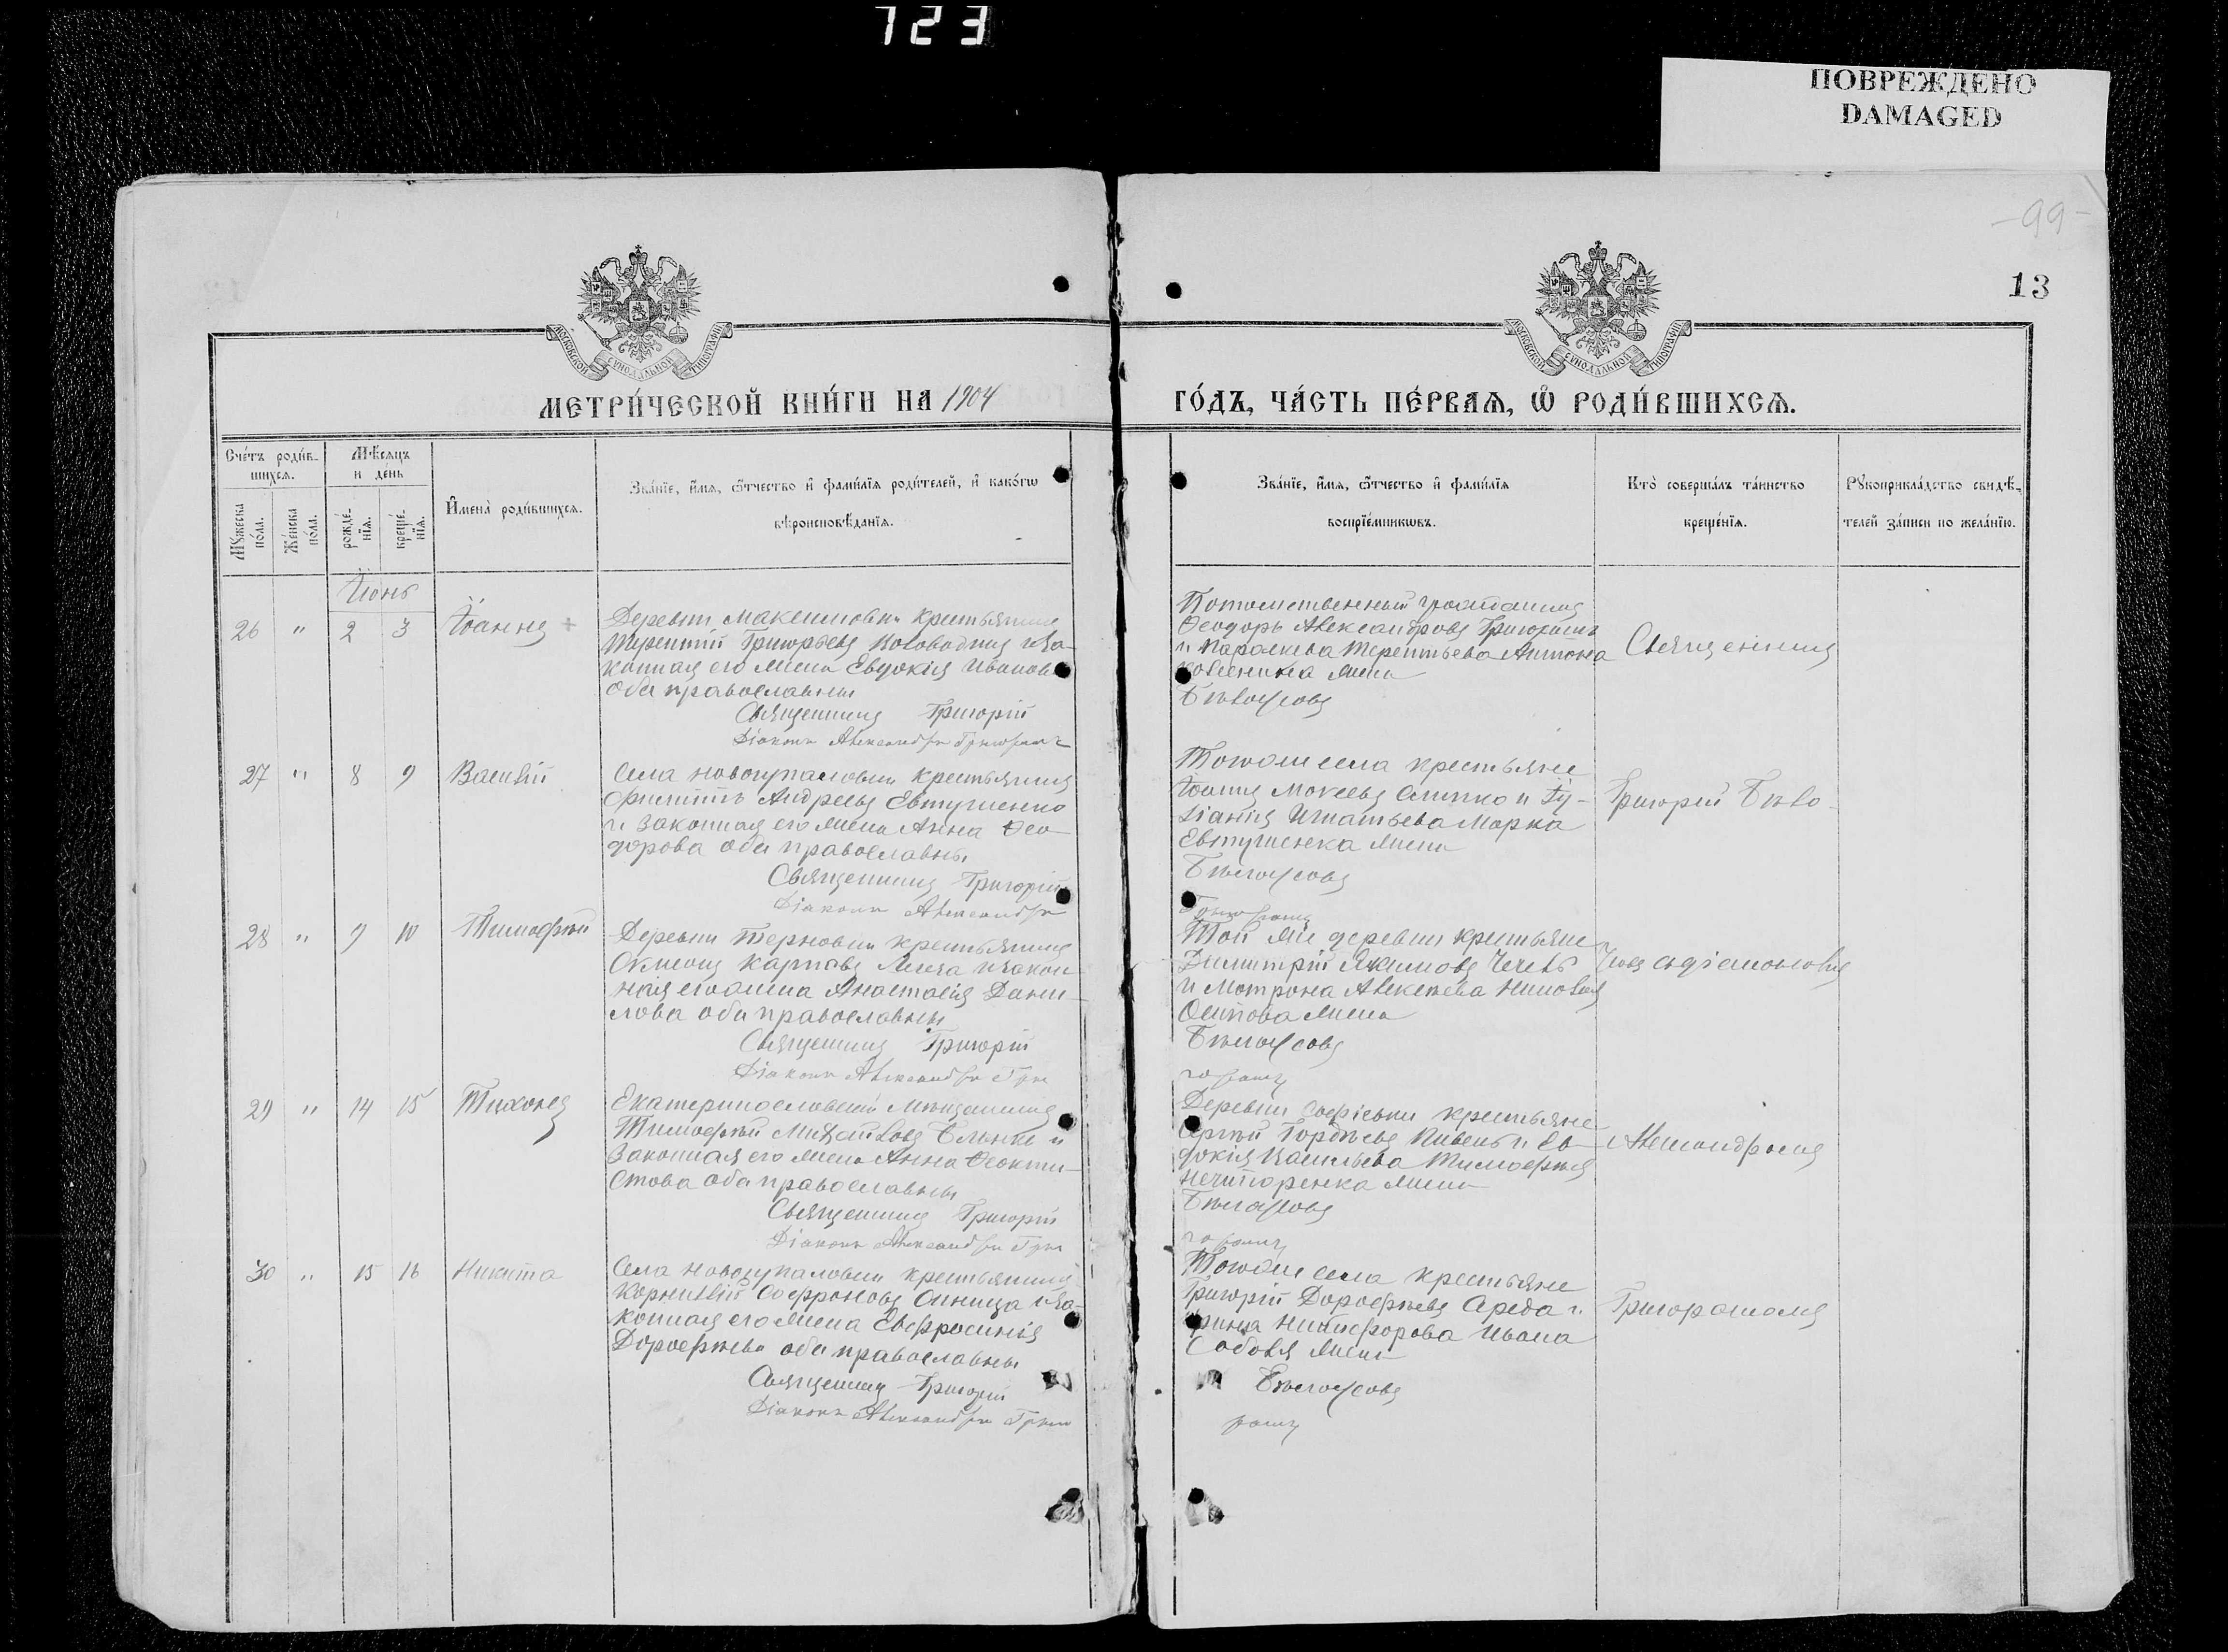 723
ПОВРЕЖДЕНО
DAMAGED
-99-
13
МОСКОВСКОЙ СѴНОДАЛЬНОЙ ТИПОГРАФІИ
МОСКОВСКОЙ СѴНОДАЛЬНОЙ ТИПОГРАФІИ
МЕТРИ́ЧЕСКОЙ КНИ́ГИ НА 1904
ГО́ДЪ, ЧА́СТЬ ПЕ́РВАѦ, Ѿ РОДИ́ВШИХСѦ.
Сче́тъ роди́в-
шихсѧ.
Мѣ́сѧцъ
и де́нь
Мꙋжеска
по́ла.
Же́нска
по́ла.
рожде́-
нїѧ.
креще́-
нїѧ.
И҆мена̀ роди́вшихсѧ.
Зва́нїе, и҆́мѧ, ѻ҆́тчество и҆ фами́лїѧ роди́телей, и҆ како́гѡ
вѣроисповѣ́данїѧ.
Зва́нїе, и҆́мѧ, ѻ҆́тчество и҆ фами́лїѧ
воспрїе́мникѡвъ.
Кто̀ соверша́лъ та́инство
креще́нїѧ.
Рꙋкоприкла́дство свидѣ́-
телей за́писи по жела́нїю.
Іюнь
26 " 2 3 Іоаннъ
Деревни Максимовки крестьянинъ
Терентій Григорьевъ Коловодниц и за-
конная его жена Евдокія Иванова
оба православны
Священникъ Григорій
Діаконъ Александръ Григорашъ
Потомственный гражданинъ
Ѳеодоръ Александровъ Григорашъ
и Параскева Терентьева Антона
жена
Бѣлоусовъ
Священникъ
27 " 8 9 Василій
Села Новоукраловки крестьянинъ
Филиппъ Андреевъ Евтушенко
и законная его жена Анна Ѳео-
дорова оба православны
Священникъ Григорій
Діаконъ Александръ
Тогоже села крестьяне
Іоаннъ Моѵсеевъ Слипко и Іу-
ліанія Игнатьева Марка
Евтушенка жена
Бѣлоусовъ
Григорашъ
Григорій Бѣло-
28 " 9 10 Тимофѣй
Деревни Терновки крестьянинъ
Карповъ и закон-
ная его жена Анастасія Дани-
лова оба православны
Священникъ Григорій
Діаконъ Александръ Гри
Той же деревни крестьяне
Димитрій Якимовъ
и Мотрона Алексѣева
Осипова жена
Бѣлоусовъ
горашъ
усовъ съ діакономъ
29 " 14 15 Тихонъ
Екатеринославскій мѣщанинъ
Тимофѣй Михайловъ и
законная его жена Анна Ѳеокти-
стова оба православны
Священникъ Григорій
Діаконъ Александръ Гри
Деревни Софіевки крестьяне
Сергѣй Гордѣевъ Кивень и Ев-
докія Васильева Тимофѣя
Нечипоренка жена
Бѣлоусовъ
горашъ
Александромъ
30 " 15 16 Никита
Села Новоукраловки крестьянинъ
Корнилій Софроновъ и за-
конная его жена Евфросинія
Дорофѣева оба православны
Священникъ Григорій
Діаконъ Александръ Григо
Тогоже села крестьяне
Григорій Дорофѣевъ Середа и
Ирина Никифорова Ивана
жена
Бѣлоусовъ
рашъ
Григорашомъ